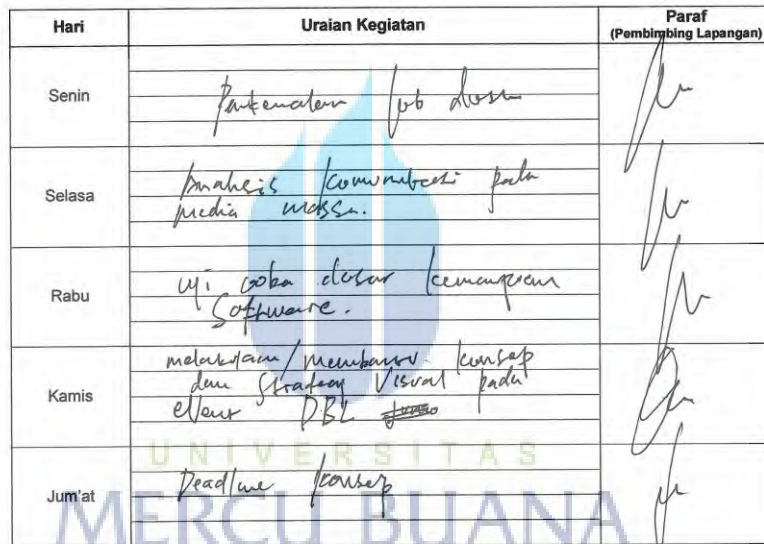 Hari Uraian Kegiatan Paraf
(Pembimbing Lapangan)
Senin
Perkenalan Job
Selasa
Analisis komunikasi pada
media massa.
Rabu
uji coba dasar kemampuan
Software.
Kamis
melakukan/membantu konsep
dan Strategy Visual pada
event DBL
Jum'at
Deadline konsep
UNIVERSITAS
MERCU BUANA